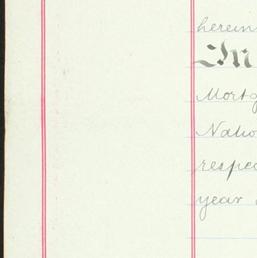 herein
In
Mortg
Natio
respec
year